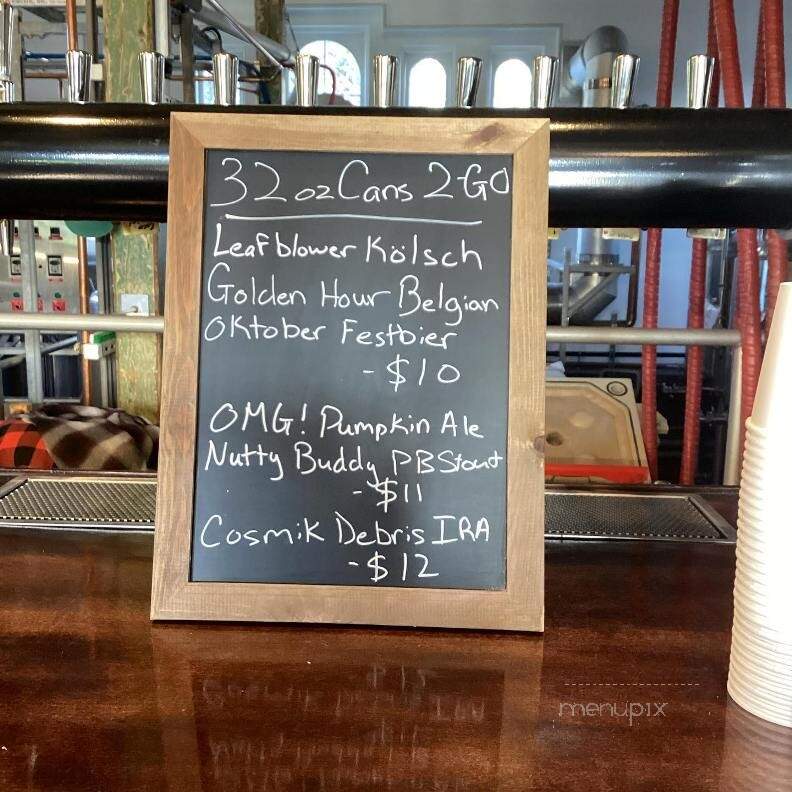 32 oz Cans 2 GO
Leafblower Kölsch
Golden Hour Belgian
Oktober Festbier
- $10
OMG! Pumpkin Ale
Nutty Buddy PB Stout
- $11
Cosmik Debris IRA
- $12
menupix